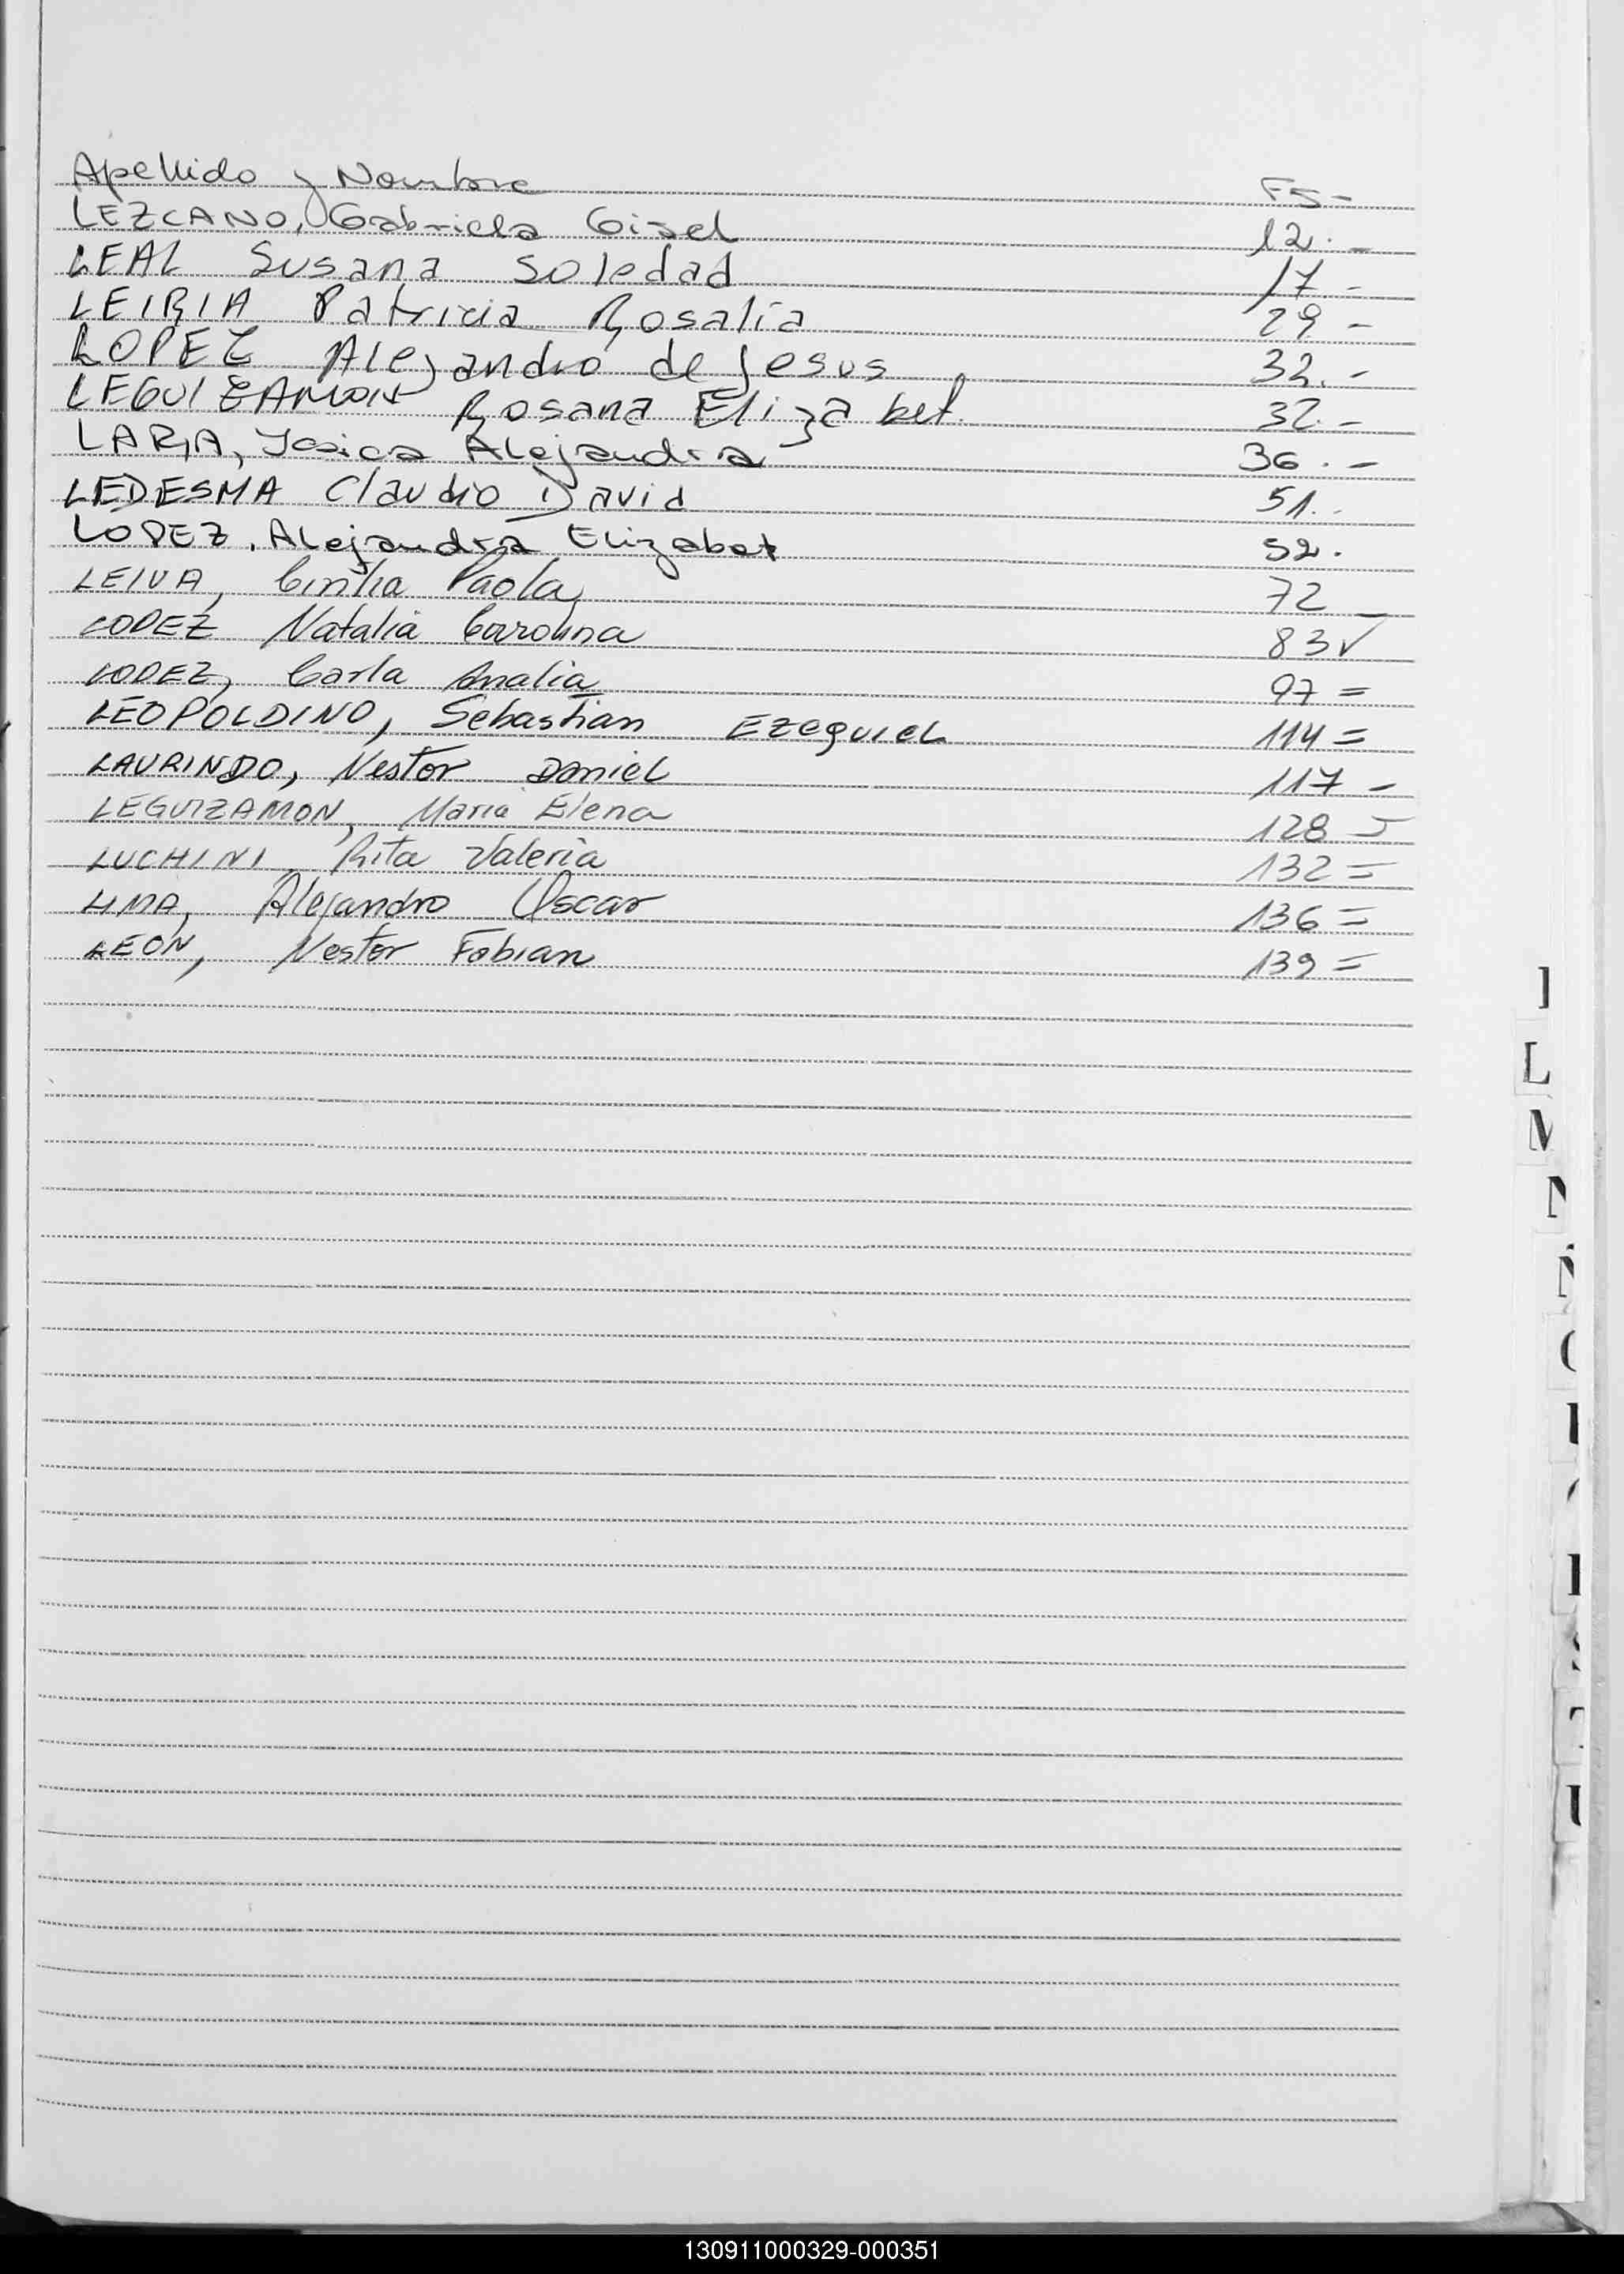 Apellido y Nombre FS-
LEZCANO, Gabriela Gisel 12.-
LEAL Susana Soledad 17.-
LEIRIA Patricia Rosalia 29-
LOPEZ Alejandro de Jesus 32.-
LEGUIZAMON Rosana Elizabet 32.-
LARA, Yesica Alejandra 36.-
LEDESMA Claudio David 51..
LOPEZ, Alejandra Elizabet 52.
LEIVA, Cintia Paola 72_
LOPEZ Natalia Carolina 83✓
LOPEZ, Carla Analia 97=
LEOPOLDINO, Sebastian EzequieL 114=
LAURINDO, Nestor DanieL 117-
LEGUIZAMON, Maria Elena 128=
LUCHINI Rita Valeria 132=
LIMA, Alejandro Oscar 136=
LEON, Nestor Fabian 139=
L
M
N
Ñ
130911000329-000351